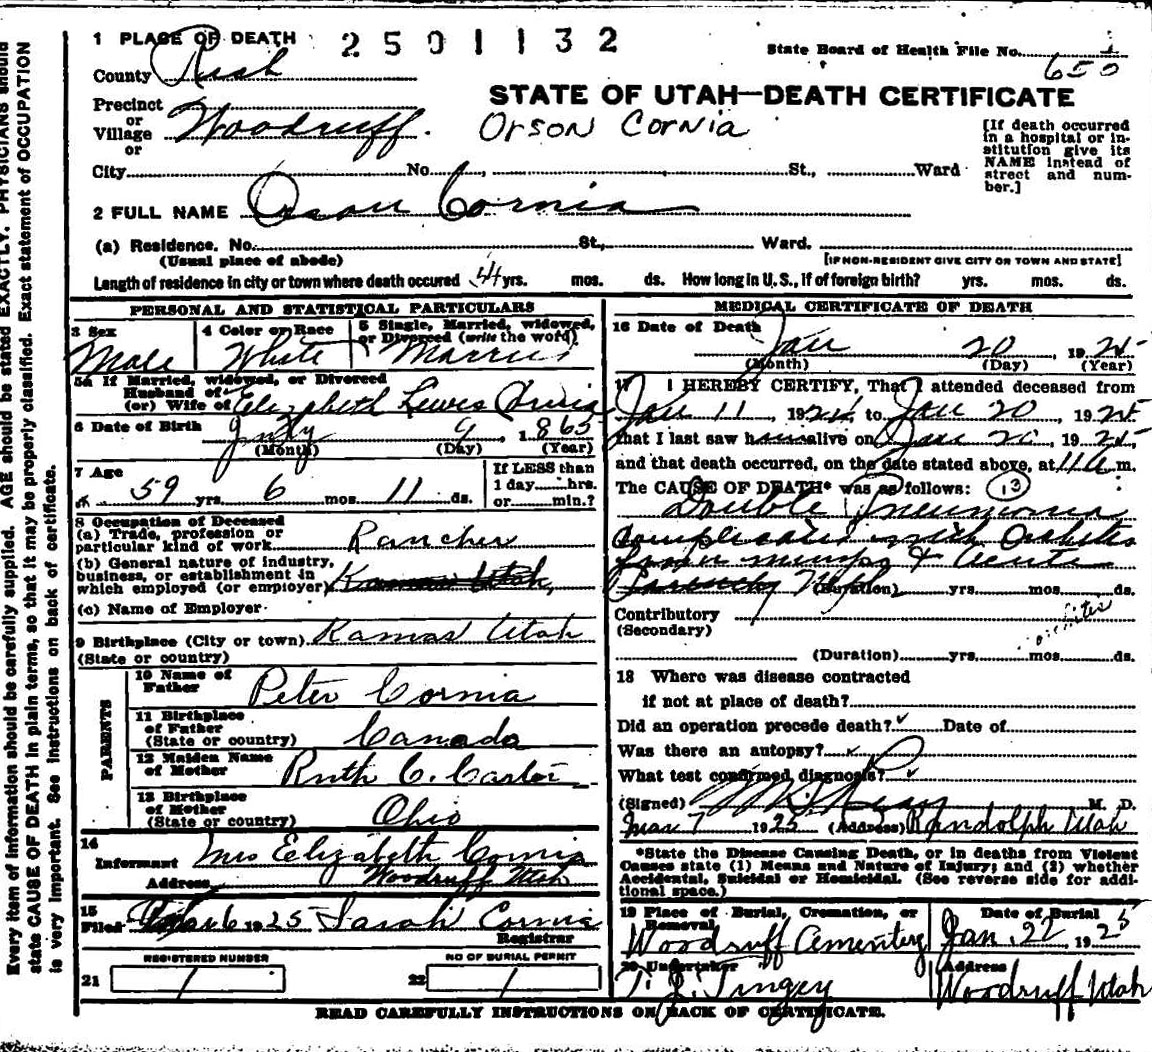 1 PLACE OF DEATH 2501132
State Board of Health File No. 1
650
County Rich
STATE OF UTAH—DEATH CERTIFICATE
Precinct
or
Village Woodruff.
or
Orson Cornia
[If death occurred
in a hospital or in-
stitution give its
NAME instead of
street and num-
ber.]
City No. St., Ward
2 FULL NAME Orson Cornia
(a) Residence. No. St., Ward.
(Usual place of abode) [IF NON-RESIDENT GIVE CITY OR TOWN AND STATE]
Length of residence in city or town where death occured yrs. mos. ds. How long in U. S., if of foreign birth? yrs. mos. ds.
PERSONAL AND STATISTICAL PARTICULARS
3 Sex
Male
4 Color or Race
White
5 Single, Married, widowed,
or Divorced (write the word)
Married
5A If Married, widowed, or Divorced
Husband of
(or) Wife of Elizabeth Lewis Cornia
6 Date of Birth July 9, 1865
(Month) (Day) (Year)
7 Age
59 yrs. 6 mos. 11 ds.
If LESS than
1 day hrs.
or min.?
8 Occupation of Deceased
(a) Trade, profession or
particular kind of work Rancher
(b) General nature of industry,
business, or establishment in
which employed (or employer) Kamas Utah,
(c) Name of Employer
9 Birthplace (City or town) Kamas Utah
(State or country)
PARENTS
10 Name of
Father Peter Cornia
11 Birthplace
of Father
(State or country) Canada
12 Maiden Name
of Mother Ruth C. Carter
13 Birthplace
of Mother
(State or country) Ohio
14
Informant Mrs Elizabeth Cornia
Address Woodruff Utah
15
Filed 6 1925 Sarah Cornia
Registrar
REGISTERED NUMBER
21 1
NO OF BURIAL PERMIT
22 1
MEDICAL CERTIFICATE OF DEATH
16 Date of Death
Jan 20, 1925
(Month) (Day) (Year)
17 I HEREBY CERTIFY, That I attended deceased from
Jan 11, 192 to Jan 20 1925
that I last saw him alive on Jan 20, 1925
and that death occurred, on the date stated above, at 11 a m.
The CAUSE OF DEATH* was as follows: 13
Double Pneumonia
complicated with Orchitis
from mumps & acute
(Duration) yrs. mos. ds.
Contributory
(Secondary)
(Duration) yrs. mos. ds.
18 Where was disease contracted
if not at place of death?
Did an operation precede death? ✓ Date of
Was there an autopsy? ✓
What test confirmed diagnosis? ✓
(Signed) M. D.
Mar 7 1925 (Address) Randolph Utah
*State the Disease Causing Death, or in deaths from Violent
Causes state (1) Means and Nature of Injury; and (2) whether
Accidental, Suicidal or Homicidal. (See reverse side for addi-
tional space.)
19 Place of Burial, Cremation, or
Removal
Woodruff Cementery
Date of Burial
Jan. 22 1925
20 Undertaker
T. J. Tingey
Address
Woodruff Utah
READ CAREFULLY INSTRUCTIONS ON BACK OF CERTIFICATE.
Every item of information should be carefully supplied. AGE should be stated EXACTLY. PHYSICIANS should
state CAUSE OF DEATH in plain terms, so that it may be properly classified. Exact statement of OCCUPATION
is very important. See instructions on back of certificate.